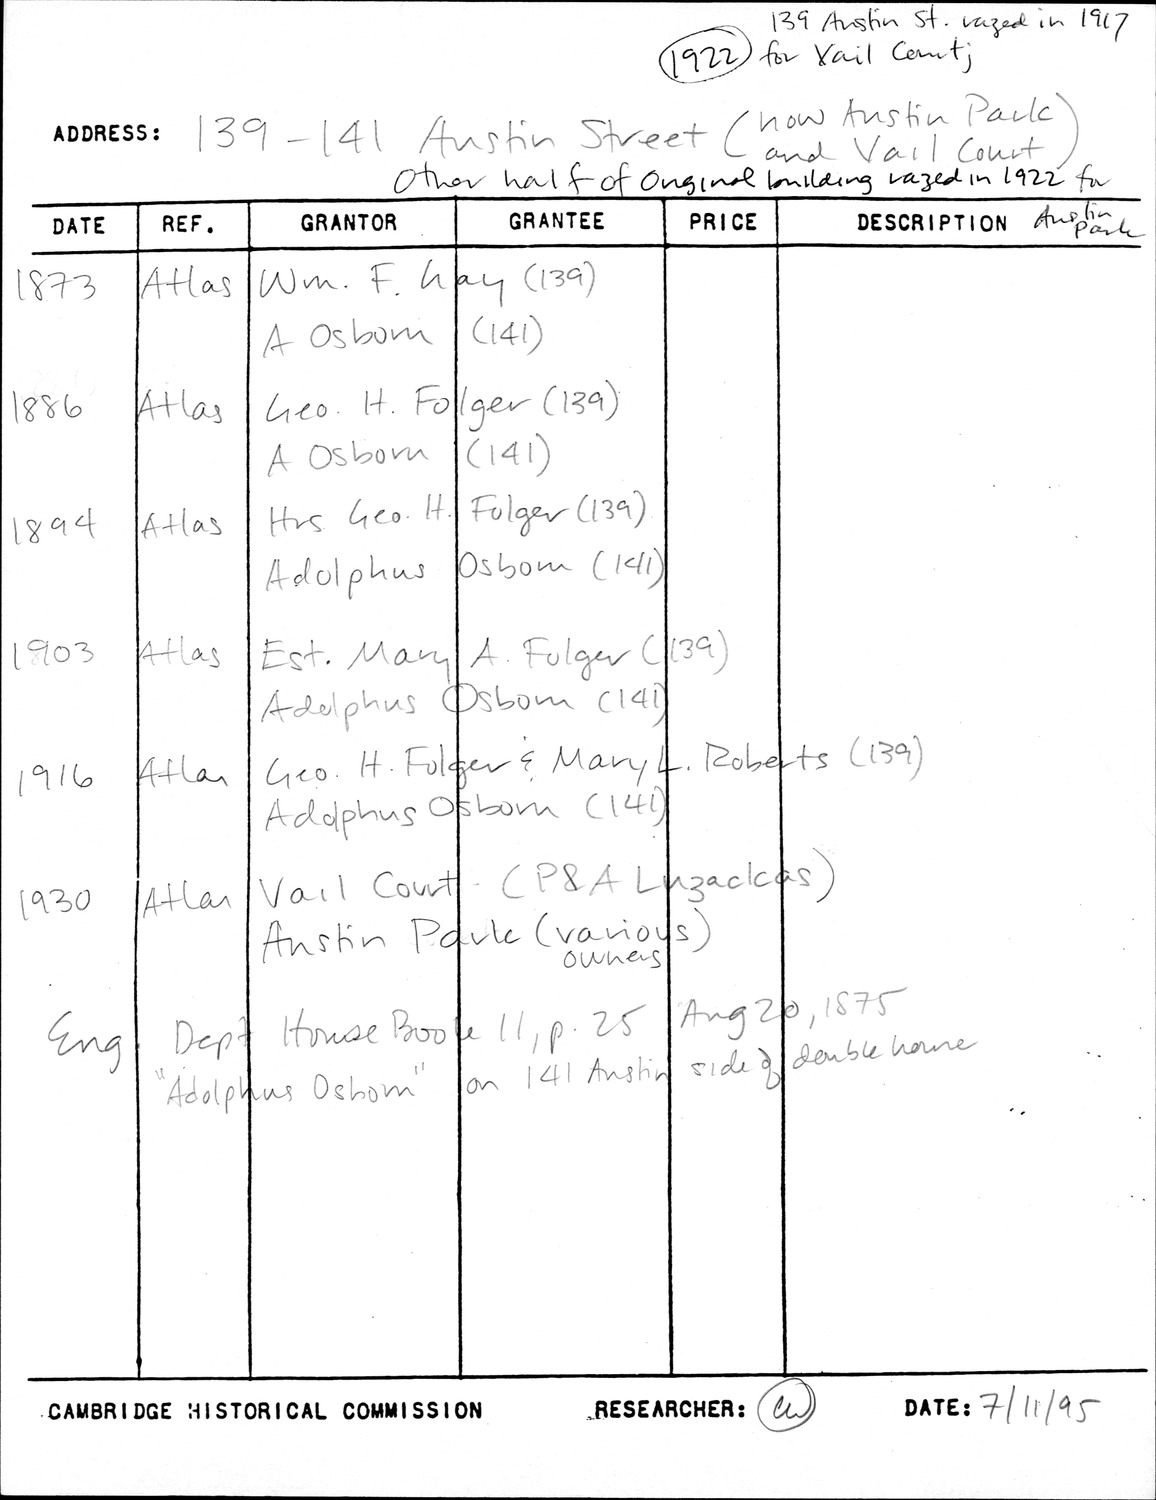 139 Austin St. razed in 1917
1922 for Vail Court;
ADDRESS: 139-141 Austin Street (now Austin Park
and Vail Court)
Other half of original building razed in 1922 for
Austin Park
DATE REF. GRANTOR GRANTEE PRICE DESCRIPTION
1873 Atlas Wm. F. Hay (139)
A Osborn (141)
1886 Atlas Geo. H. Folger (139)
A Osborn (141)
1894 Atlas Hrs Geo. H. Folger (139)
Adolphus Osborn (141)
1903 Atlas Est. Mary A. Folger (139)
Adolphus Osborn (141)
1916 Atlas Geo. H. Folger & Mary L. Roberts (139)
Adolphus Osborn (141)
1930 Atlas Vail Court - (P&A Luzackas)
Austin Park (various)
owners
Eng. Dept House Book 11, p. 25 Aug 20, 1875
"Adolphus Osborn" on 141 Austin side of double house
CAMBRIDGE HISTORICAL COMMISSION RESEARCHER: DATE: 7/11/95